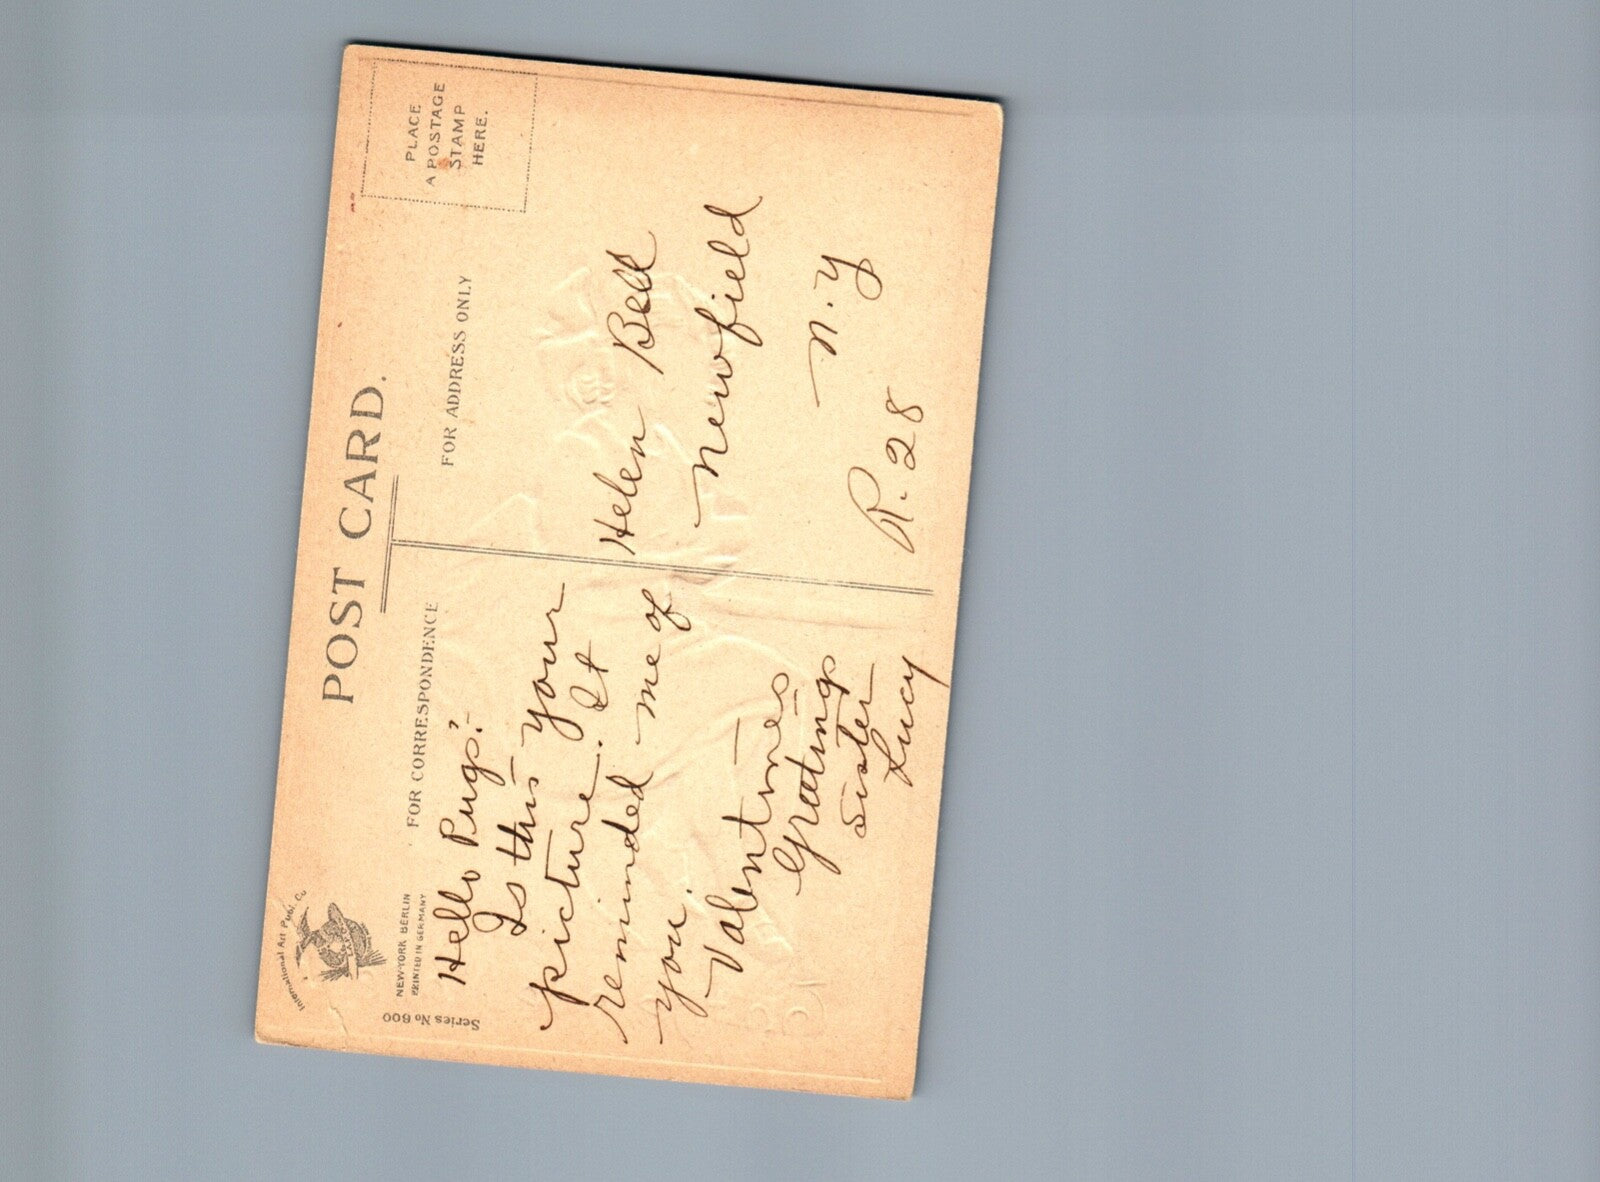 POST CARD.
PLACE
A POSTAGE
STAMP
HERE.
International Art Publ. Co
NEW-YORK BERLIN
PRINTED IN GERMANY
Series No 600
FOR CORRESPONDENCE
FOR ADDRESS ONLY
Hello Pugs!
Is this your
picture. It
reminded me of
you.
Valentines
Greetings
Sister
Lucy
Helen Bell
Newfield
N.Y
R. 28